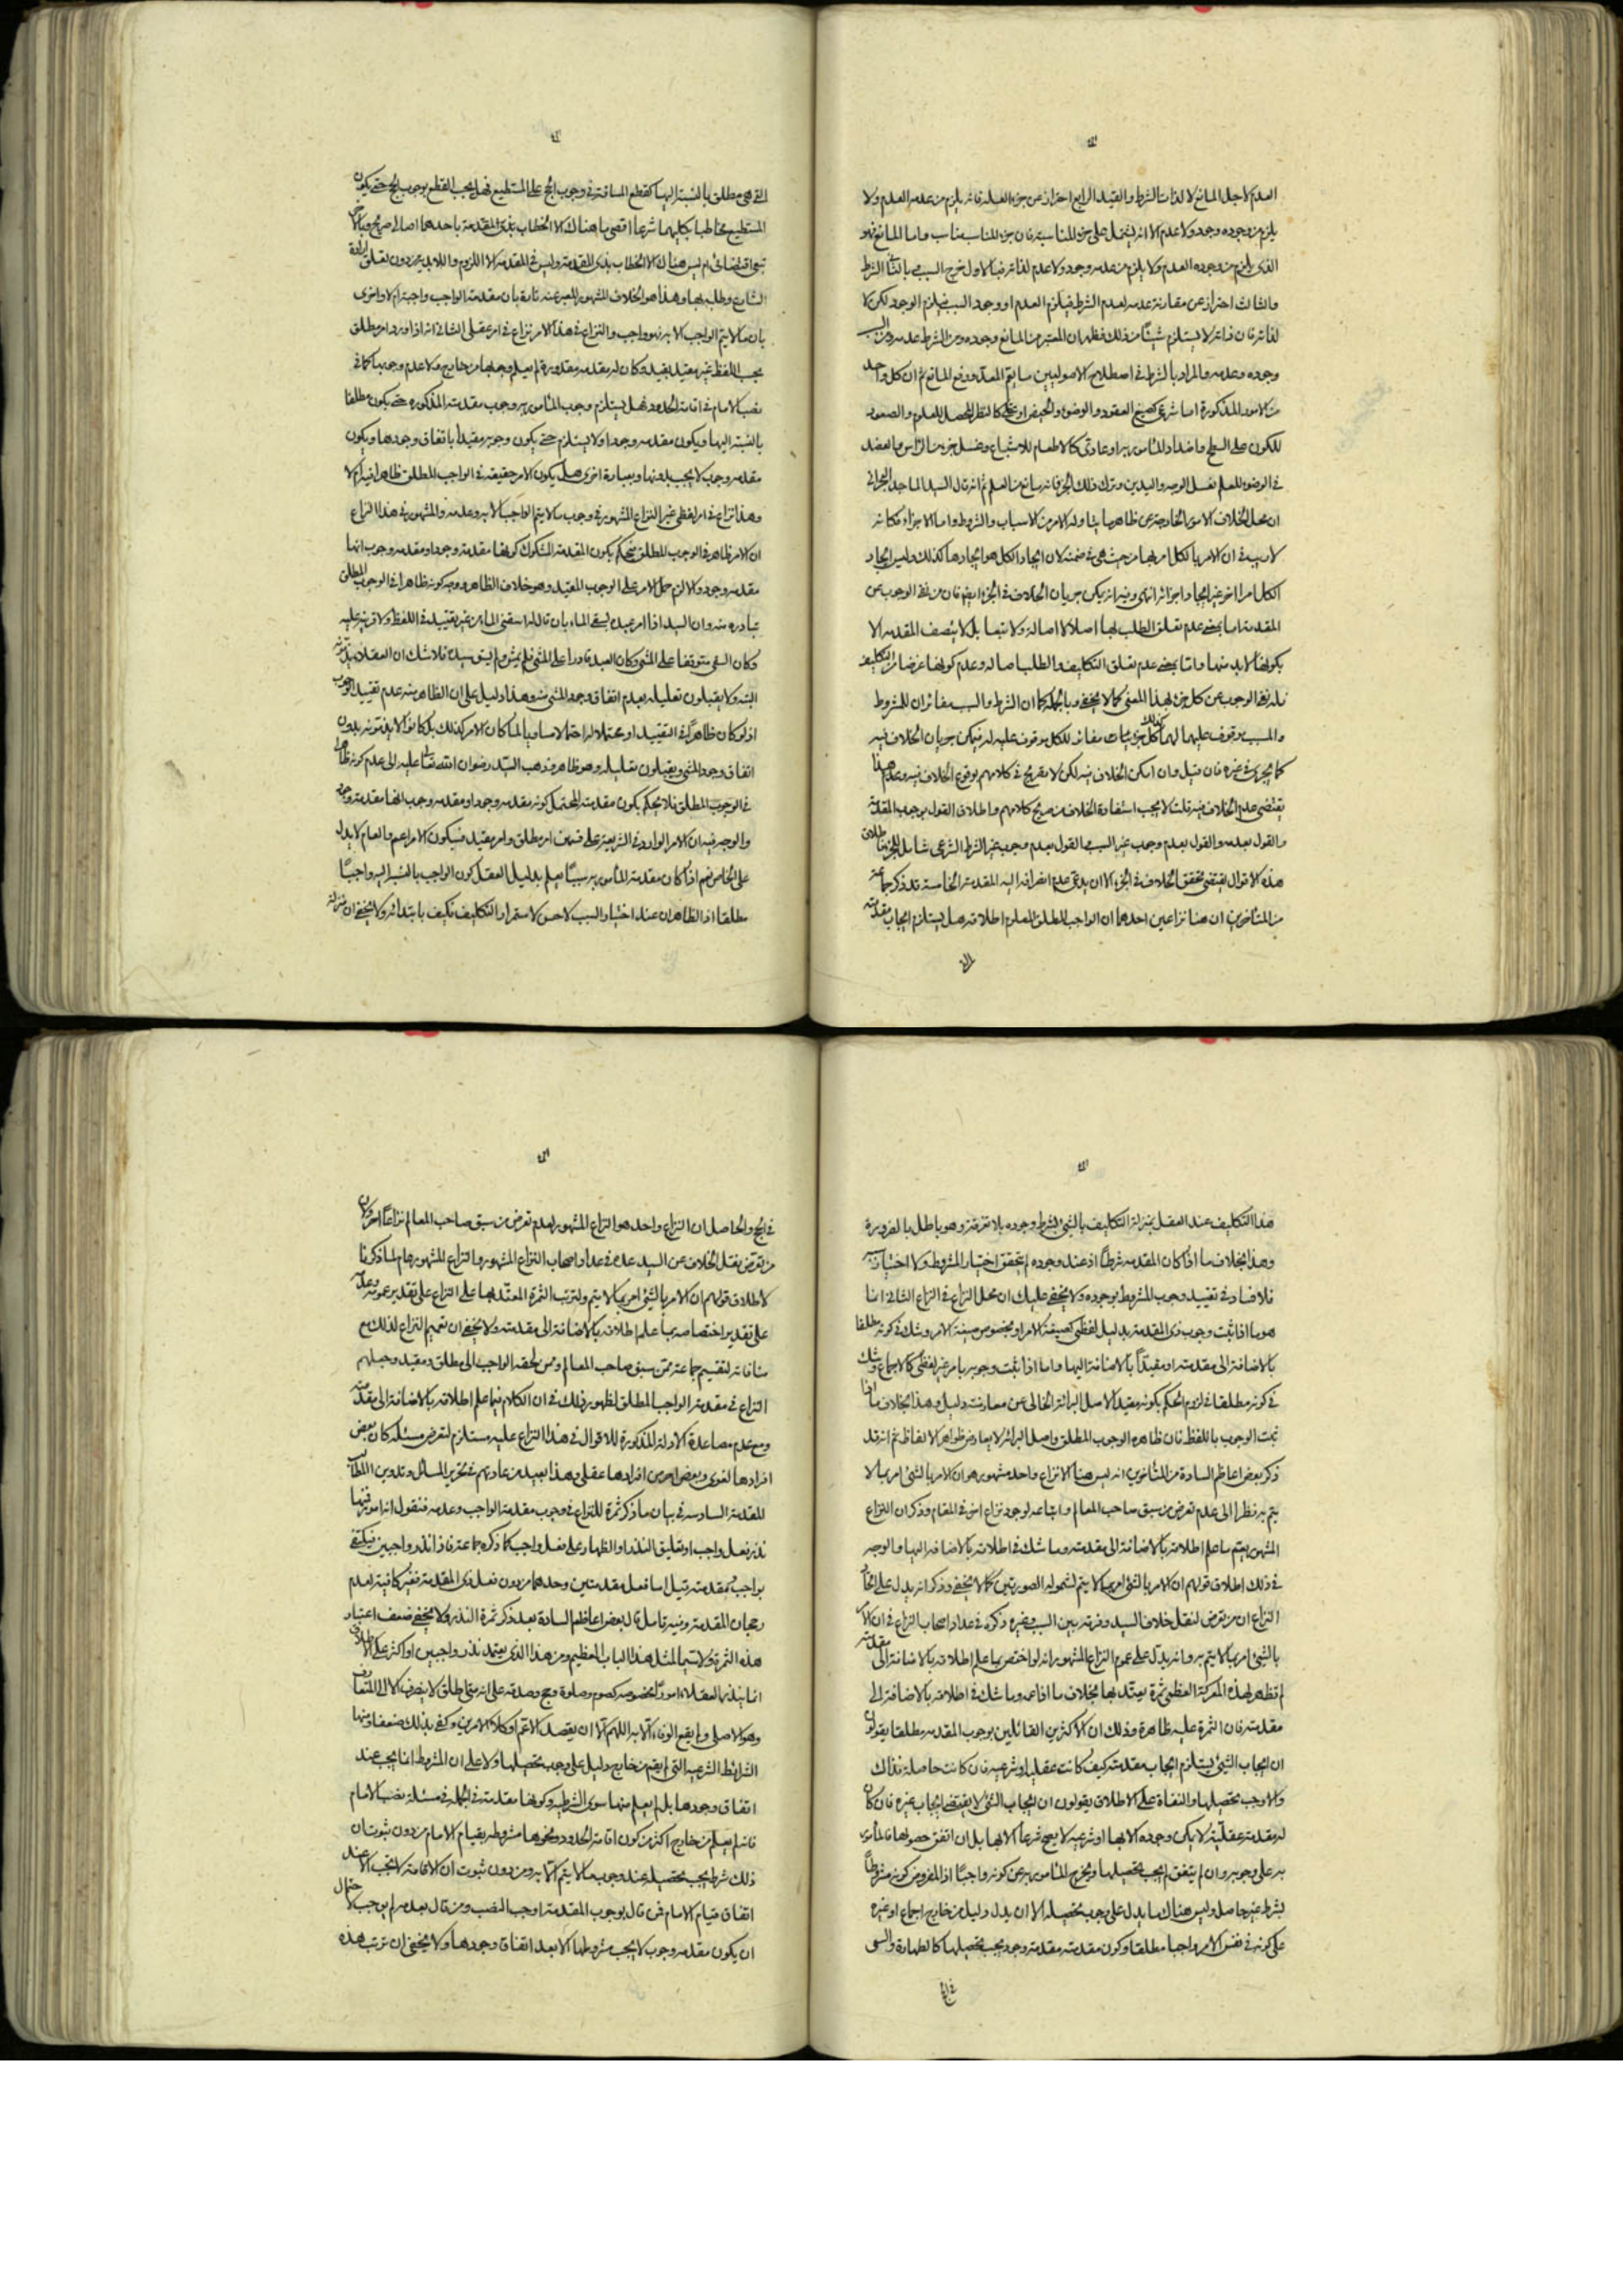 العدم لاجل المانع لا لذات الشرط والقيد الرابع احتراز عن جزء العلة فانه يلزم من عدمه العدم ولا
يلزم من وجوده وجود ولا عدم الا انه يشتمل على جزء المناسبة فان جزء المناسب مناسب واما المانع فهو
الذى يلزم من وجوده العدم ولا يلزم من عدمه وجود ولا عدم لذاته فبالاول خرج السبب وبالثانى الشرط
والثالث احتراز عن مقارنة عدمه لعدم الشرط فيلزم العدم او وجود السبب فيلزم الوجود لكن لا
لذاته فان ذاته لا يستلزم شيئا من ذلك فظهر ان المعتبر من المانع وجوده ومن الشرط عدمه ومن السبب
وجوده وعدمه والمراد بالشرط فى اصطلاح الاصوليين ما يعم المعد ورفع المانع ثم ان كل واحد
من الامور المذكورة اما شرعى كصيغ العقود والوضوء والحيض او عقلى كالنظر المحصل للعلم والصعود
للكون على السطح واضداد المامور به او عادى كالاطعام للاشباع وغسل جزء من الراس والعضد
فى الوضوء للعلم بغسل الوجه واليدين وترك ذلك الجزء فانه مانع من العلم ثم انه قال السيد الماجد البحرانى
ان محل الخلاف الامور الخارجة عن ظاهر ما يتناوله الامر من الاسباب والشروط واما الاجزاء فكانه
لا ريب فى ان الامر بالكل امر بها من حيث هى فى ضمنه لان ايجاد الكل هو ايجادها كذلك وليس ايجاد
الكل امرا اخر غير ايجاد اجزائه انتهى وفيه انه يمكن جريان الخلاف فى الجزء ايضا فان من نفى الوجوب عن
المقدمة اما بمعنى عدم تعلق الطلب لها اصلا لا اصالة ولا تبعا بل لا يتصف المقدمة الا
بكونها لا بد منها واما بمعنى عدم تعلق التكليف والطلب اصالة وعدم كونها غرضا من التكليف
فله نفى الوجوب عن كل جزء بهذا المعنى كما لا يخفى وبالجملة كما ان الشرط والسبب مغايران للمشروط
والمسبب موقوف عليهما لهما كذلك كل جزء مغاير للكل موقوف عليه له فيمكن جريان الخلاف فيه
كما يجرى فى غيره فان قيل وان امكن الخلاف فيه لكن لا تصريح فى كلامهم بوقوع الخلاف فيه وعدم هذا
يقتضى عدم الخلاف فيه قلت لا يجب استفادة الخلاف من صريح كلامهم واطلاق القول بوجوب المقدمة
والقول بعدمه والقول بعدم وجوب غير السبب والقول بعدم وجوب غير الشرط الشرعى شامل للجزء فاطلاق
هذه الاقوال يقتضى تحقق الخلاف فى الجزء الا ان يدعى عدم انصرافه اليه المقدمة الخامسة قد ذكر جماعة
من المتاخرين ان هنا نزاعين احدهما ان الواجب المطلق المعلوم اطلاقه هل يستلزم ايجاب مقدمته
التى هى مطلق بالنسبة اليها كقطع المسافة فى وجوب الحج على المستطيع فهل يجب القطع بوجوب الحج حتى يكون
المستطيع مخاطبا بكليهما شرعا اقصى ما هناك الا الخطاب بذى المقدمة باحدهما اصالى صريح وبالاخر
تبعى اقتضائى ام ليس هناك الا الخطاب بذى المقدمة وليس فى المقدمة الا اللزوم واللابدية من دون تعلق ارادة
الشارع وطلبه بها وهذا هو الخلاف المشهور المعبر عنه تارة بان مقدمة الواجب واجبة ام لا واخرى
بان ما لا يتم الواجب الا به فهو واجب والنزاع فى هذا الامر نزاع فى امر عقلى الثانى انه اذا ورد امر مطلق
بحسب اللفظ غير مقيد بقيد وكان له مقدمة مقدورة لم يعلم وجوبها من خارج ولا عدم وجوبها كما فى
نصب الامام فى اقامة الحدود فهل يستلزم وجوب المامور به وجوب مقدمته المذكورة حتى يكون مطلقا
بالنسبة اليها ويكون مقدمة وجود او لا يستلزم حتى يكون وجوبه مقيدا باتفاق وجودها ويكون
مقدمة وجوب لا يجب بدونها وبعبارة اخرى هل يكون الامر حقيقة فى الواجب المطلق ظاهرا فيه ام لا
وهذا نزاع فى امر لفظى غير النزاع المشهور فى وجوب ما لا يتم الواجب الا به وعدمه والمشهور فى هذا النزاع
ان الامر ظاهر فى الوجوب المطلق فيحكم بكون المقدمة المشكوك كونها مقدمة وجود او مقدمة وجوب انها
مقدمة وجود والا لزم حمل الامر على الوجوب المقيد وهو خلاف الظاهر ووجه كونه ظاهرا فى الوجوب المطلق
تبادره منه وان السيد اذا امر عبده بسقى الماء بان قال له اسقنى الماء من غير تقييد فى اللفظ ولا قرينة عليه
وكان السقى متوقفا على المشى وكان العبد قادرا على المشى فلم يمش ولم يسق سيده فلا شك ان العقلاء يذمونه
البتة ولا يقبلون تعليله بعدم اتفاق وجود المشى منه وهذا دليل على ان الظاهر منه عدم تقييد الوجوب
اذ لو كان ظاهرا فى التقييد او محتملا له احتمالا مساويا لما كان الامر كذلك بل كانوا لا يذمونه بدون
اتفاق وجود المشى ويقبلون تعليله وهو ظاهر وذهب السيد رضوان الله تعالى عليه الى عدم كونه ظاهرا
فى الوجوب المطلق فلا يحكم بكون مقدمته المحتمل كونه مقدمة وجود او مقدمة وجوب انها مقدمة وجود
والوجه فيه ان الامر الوارد فى الشريعة على قسمين امر مطلق وامر مقيد فيكون الامر اعم والعام لا يدل
على الخاص نعم اذا كان مقدمة المامور به سببا يعلم بدليل العقل كون الواجب بالنسبة اليه واجبا
مطلقا اذ الظاهر ان عند اختيار السبب لا حسن لاستمرار التكليف فكيف بابتدائه ولا يخفى ان منزلة
هذا التكليف عند العقل بمنزلة التكليف بالشئ بشرط وجوده بلا تفرقة وهو باطل بالضرورة
وهذا بخلاف ما اذا كان المقدمة شرطا اذ عند وجوده لم يتحقق اختيار المشروط ولا اختيار سببه
فلا فساد فى تقييد وجوب المشروط بوجوده ولا يخفى عليك ان محل النزاع فى النزاع الثانى انما
هو ما اذا ثبت وجوب ذى المقدمة بدليل لفظى كصيغة الامر او بخصوص صيغة الامر وشك فى كونه مطلقا
بالاضافة الى مقدمته او مقيدا بالاضافة اليها واما اذا ثبت وجوبه بامر غير لفظى كالاجماع وشك
فى كونه مطلقا فى لزوم الحكم بكونه مقيدا لاصل البرائة الخالى عن معارضة دليل وهذا بخلاف ما اذا
ثبت الوجوب باللفظ فان ظاهره الوجوب المطلق واصل البرائة لا يعارض ظواهر الالفاظ ثم انه قد
ذكر بعض اعاظم السادة من المتاخرين انه ليس هنا الا نزاع واحد مشهور هو ان الامر بالشئ امر بما لا
يتم به نظرا الى عدم تعرض من سبق صاحب المعالم واتباعه لوجود نزاع اخر فى المقام وذكر ان النزاع
المشهور يعم ما علم اطلاقه بالاضافة الى مقدمته وما شك فى اطلاقه بالاضافة اليها والوجه
فى ذلك اطلاق قولهم ان الامر بالشئ امر بما لا يتم لشموله الصورتين كما لا يخفى وذكر انه يدل على اتحاد
النزاع ان من تعرض لنقل خلاف السيد وفرقه بين السبب وغيره ذكره فى عداد اصحاب النزاع فى ان الامر
بالشئ امر بما لا يتم به وانه يدل على عموم النزاع المشهور انه لو اختص بما علم اطلاقه بالاضافة الى مقدمته
لم تظهر لهذه المعركة العظمى ثمرة يعتد بها بخلاف ما اذا عم وما شك فى اطلاقه بالاضافة الى
مقدمته فان الثمرة عليه ظاهرة وذلك ان الاكثرين القائلين بوجوب المقدمة مطلقا يقولون
ان ايجاب الشئ يستلزم ايجاب مقدمته كيف كانت عقلية او شرعية فان كانت حاصلة فذاك
والا وجب تحصيلها والنفاة على الاطلاق يقولون ان ايجاب الشئ لا يقتضى ايجاب غيره فان كان
له مقدمة عقلية لا يمكن وجوده الا بها او شرعية لا يصح شرعا الا بها بل ان اتفق حصولها فالمامور
به على وجوبه وان لم يتفق لم يجب تحصيلها ويخرج المامور به عن كونه واجبا اذ المفروض كونه مشروطا
بشرط غير حاصل وليس هناك ما يدل على وجوب تحصيله الا ان يدل دليل من خارج اجماع او غيره
على كونه فى نفس الامر واجبا مطلقا وكون مقدمته مقدمة وجود يجب تحصيلها كالطهارة والسعى
فى الحج والحاصل ان النزاع واحد هو النزاع المشهور لعدم تعرض من سبق صاحب المعالم نزاعا اخر ولان
من تعرض بنقل الخلاف عن السيد عده فى عداد اصحاب النزاع المشهور والنزاع المشهور عام لما ذكرنا
لاطلاق قولهم ان الامر بالشئ امر بما لا يتم ولترتب الثمرة المعتد بها على النزاع على تقدير عمومه وعدمه
على تقدير اختصاصه بما علم اطلاقه بالاضافة الى مقدمته ولا يخفى ان تعميم النزاع لذلك مع
منافاته لتقسيم جماعة ممن سبق صاحب المعالم ومن لحقه الواجب الى مطلق ومقيد وجعلهم
النزاع فى مقدمة الواجب المطلق لظهور ذلك فى ان الكلام فيما علم اطلاقه بالاضافة الى مقدمته
ومع عدم مساعدة الادلة المذكورة للاقوال فى هذا النزاع عليه مستلزم لتعرض مسئلة كان بعض
افرادها لغوى وبعض اخر من افرادها عقلى وهذا بعيد من عادتهم فى تحرير المسائل وتدوين المطالب
المقدمة السادسة فى بيان ما ذكر ثمرة للنزاع فى وجوب مقدمة الواجب وعدمه فنقول انه امور فمنها
نذر فعل واجب او تعليق النذر او الظهار على فعل واجب كما ذكره جماعة فاذا نذر واجبين فيكتفى
بواجب بمقدمته قيل اما فعل مقدمتين وحدهما من دون فعل ذى المقدمة فغير كافية لعدم
رجحان المقدمة وفيه تامل قال بعض اعاظم السادة بعد ذكر ثمرة النذر ولا يخفى ضعف اعتبار
هذه الثمرة ولا سيما لمثل هذا الباب العظيم ومن هذا الذى يعتمد نذر واجبين او اكثر على الاطلاق
انما ينذر العقلاء امورا مخصوصة كصوم وصلوة وحج وصدقة على انه متى اطلق لا ينصرف الا الى المتعارف
وهو الاصلى ولم يقع الوفاء الا به اللهم الا ان يقصد الاعم او كلا الامرين وكفى بذلك ضعفا ومنها
الشرائط الشرعية التى لم يقم من خارج دليل على وجوب تحصيلها ولا على ان المشروط انما يجب عند
اتفاق وجودها بل لم يعلم منها سوى الشرطية وكونها مقدمة فى الجملة فى مسئلة نصب الامام
فانه لم يعلم من خارج اكثر من كون اقامة الحدود ونحوها مشروطة بقيام الامام من دون ثبوت ان
ذلك شرط يجب تحصيله عند وجوب ما لا يتم الا به ومن دون ثبوت ان الاقامة لا تجب الا عند
اتفاق قيام الامام فمن قال بوجوب المقدمة اوجب النصب ومن قال بعدمه لم يوجب لاحتمال
ان يكون مقدمة وجوب لا يجب مشروطها الا بعد اتفاق وجودها ولا يخفى ان ترتب هذه